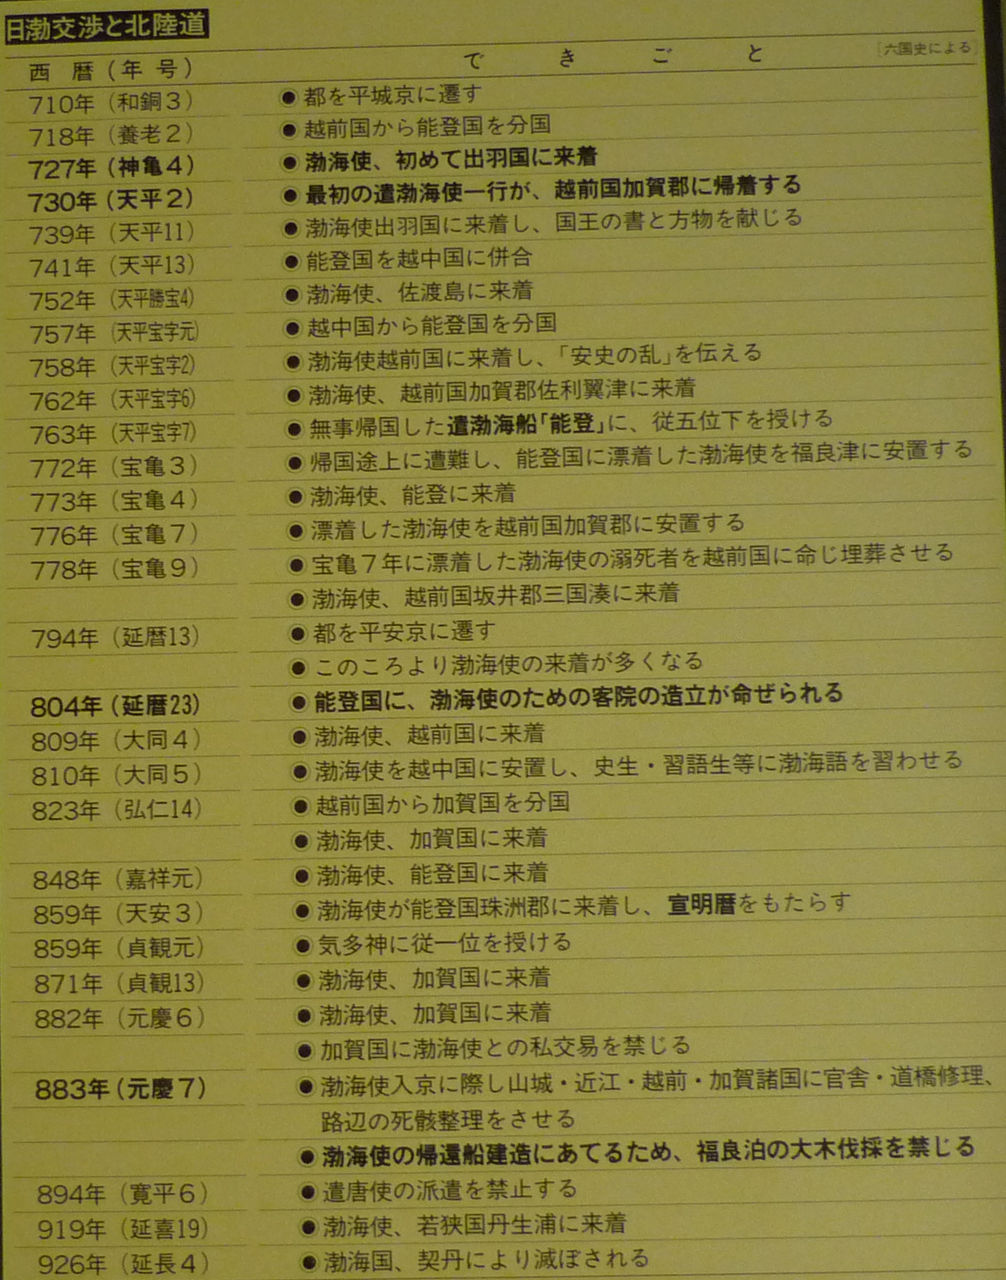 日渤交渉と北陸道
西暦(年号) できごと [六国史による]
710年(和銅3) ●都を平城京に遷す
718年(養老2) ●越前国から能登国を分国
727年(神亀4) ●渤海使、初めて出羽国に来着
730年(天平2) ●最初の遣渤海使一行が、越前国加賀郡に帰着する
739年(天平11) ●渤海使出羽国に来着し、国王の書と方物を献じる
741年(天平13) ●能登国を越中国に併合
752年(天平勝宝4) ●渤海使、佐渡島に来着
757年(天平宝字元) ●越中国から能登国を分国
758年(天平宝字2) ●渤海使越前国に来着し、「安史の乱」を伝える
762年(天平宝字6) ●渤海使、越前国加賀郡佐利翼津に来着
763年(天平宝字7) ●無事帰国した遣渤海船「能登」に、従五位下を授ける
772年(宝亀3) ●帰国途上に遭難し、能登国に漂着した渤海使を福良津に安置する
773年(宝亀4) ●渤海使、能登に来着
776年(宝亀7) ●漂着した渤海使を越前国加賀郡に安置する
778年(宝亀9) ●宝亀7年に漂着した渤海使の溺死者を越前国に命じ埋葬させる
●渤海使、越前国坂井郡三国湊に来着
794年(延暦13) ●都を平安京に遷す
●このころより渤海使の来着が多くなる
804年(延暦23) ●能登国に、渤海使のための客院の造立が命ぜられる
809年(大同4) ●渤海使、越前国に来着
810年(大同5) ●渤海使を越中国に安置し、史生・習語生等に渤海語を習わせる
823年(弘仁14) ●越前国から加賀国を分国
●渤海使、加賀国に来着
848年(嘉祥元) ●渤海使、能登国に来着
859年(天安3) ●渤海使が能登国珠洲郡に来着し、宣明暦をもたらす
859年(貞観元) ●気多神に従一位を授ける
871年(貞観13) ●渤海使、加賀国に来着
882年(元慶6) ●渤海使、加賀国に来着
●加賀国に渤海使との私交易を禁じる
883年(元慶7) ●渤海使入京に際し山城・近江・越前・加賀諸国に官舎・道橋修理、
路辺の死骸整理をさせる
●渤海使の帰還船建造にあてるため、福良泊の大木伐採を禁じる
894年(寛平6) ●遣唐使の派遣を禁止する
919年(延喜19) ●渤海使、若狭国丹生浦に来着
926年(延長4) ●渤海国、契丹により滅ぼされる